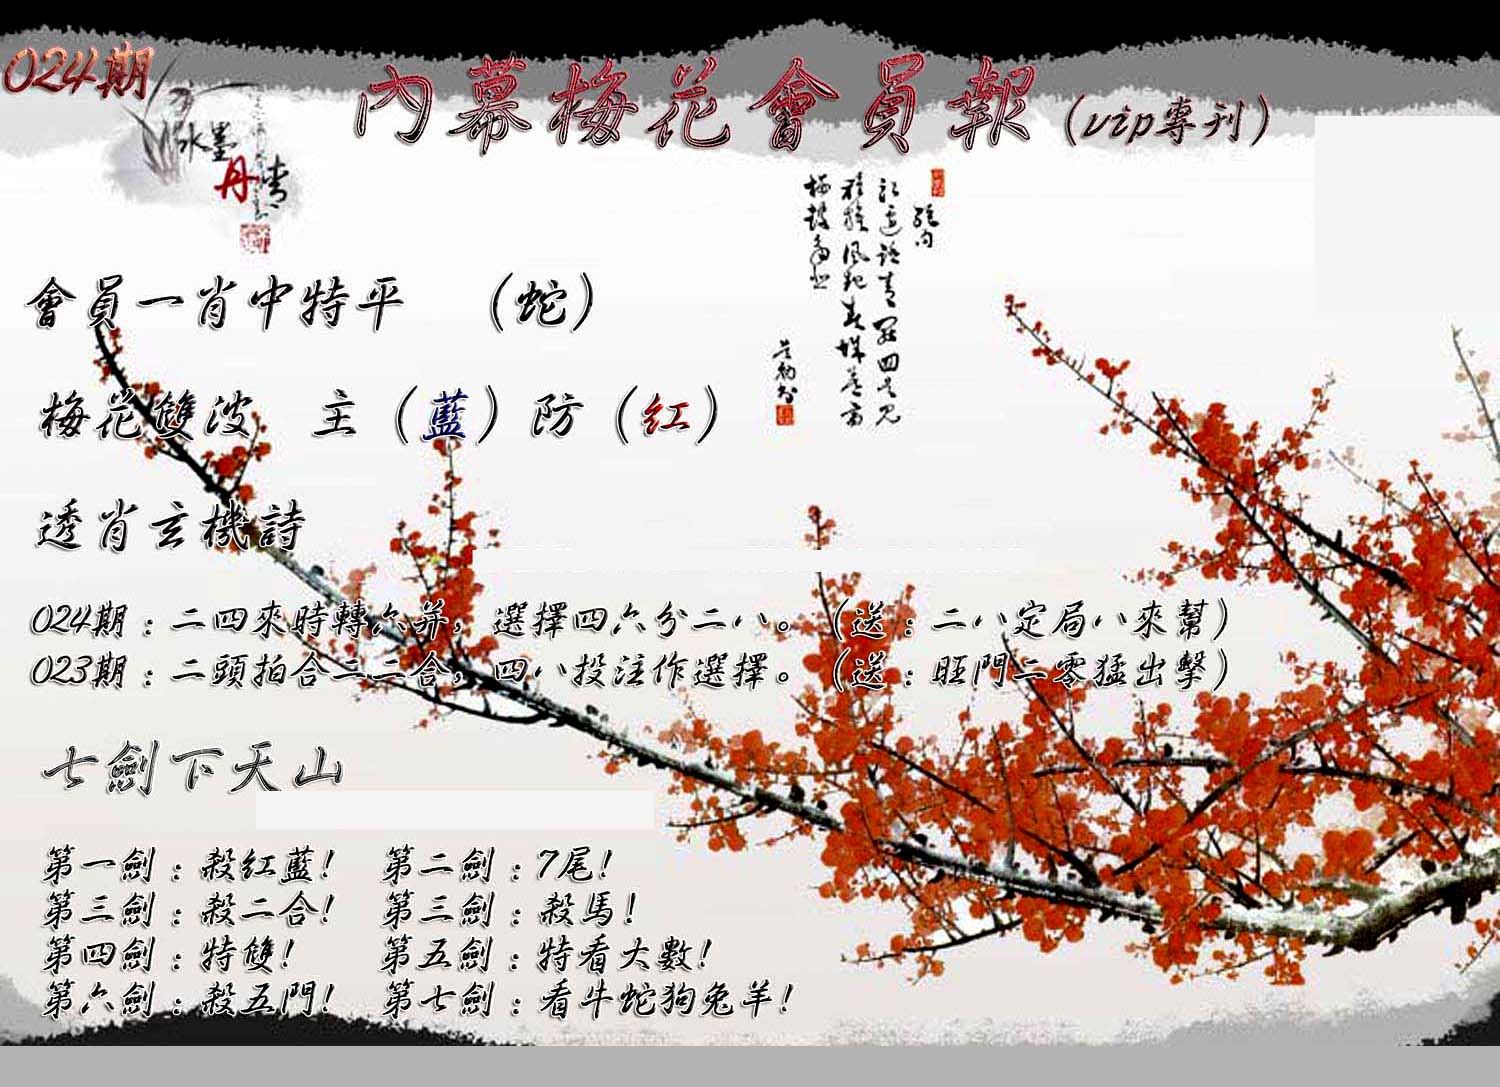 024期
內幕梅花會員報（vip專刊）
水墨
丹青
會員一肖中特平　（蛇）
梅花雙波　主（藍）防（红）
透肖玄機詩
024期：二四來時轉六并，選擇四六分二八。（送：二八定局八來幫）
023期：二頭拍合二二合，四八投注作選擇。（送：旺門二零猛出擊）
七劍下天山
第一劍：殺红藍！　第二劍：7尾！
第三劍：殺二合！　第三劍：殺馬！
第四劍：特雙！　第五劍：特看大數！
第六劍：殺五門！　第七劍：看牛蛇狗兔羊！